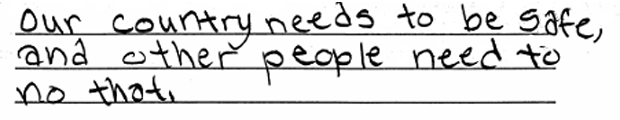 Our country needs to be safe,
and other people need to
no that.